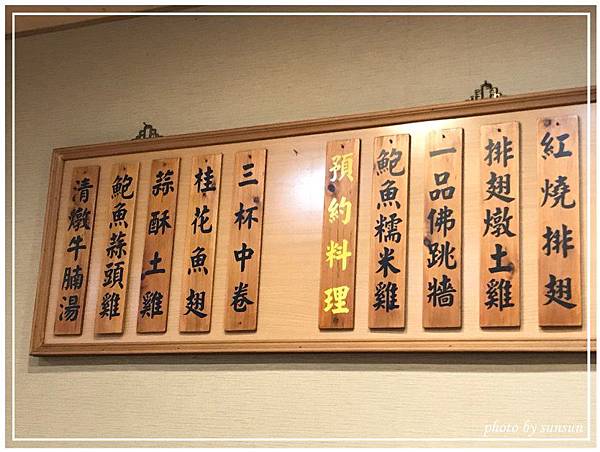 紅燒排翅
排翅燉土雞
一品佛跳牆
鮑魚糯米雞
預約料理
三杯中卷
桂花魚翅
蒜酥土雞
鮑魚蒜頭雞
清燉牛腩湯
photo by sunsun